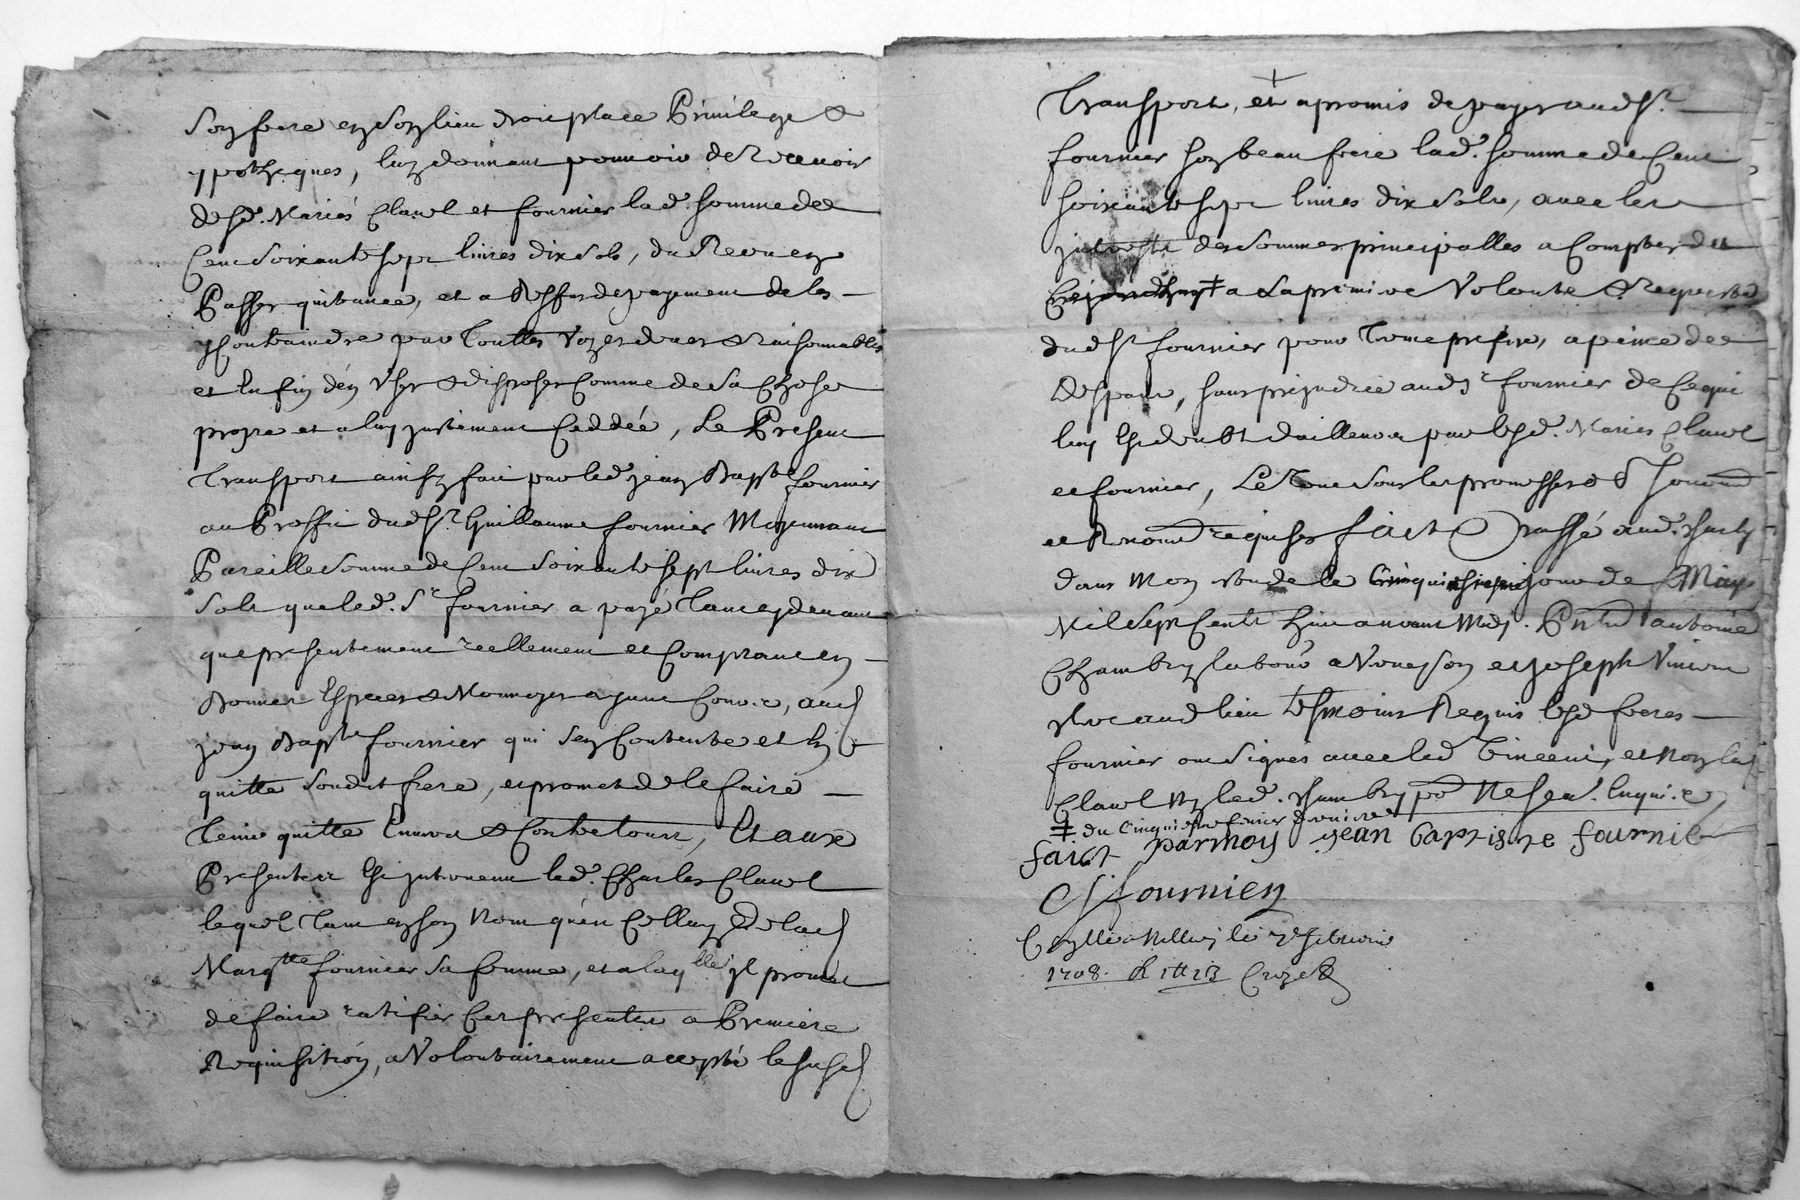 son frere en son lieu droit place Privilege &
ypotheques, luy donnant pouvoir de Recevoir
desd. Mariés Clavel et fournier lad. somme de
Cent soixante sept livres dix sols, du Receu en
Passer quittance, et a deffaut de payement de les
y Contraindre par Touttes voyes deues & raisonnables
et En fin d'en User & disposer Comme de sa Chose
propre et a luy justement Ceddée, Le Present
Transport ainsy fait par led. jean Bapte fournier
au Proffit dud. Sr. Guillaume fournier Moyennant
Pareille somme de Cent soixante sept livres dix
sols que led. Sr fournier a payé tant cy devant
que presentement reellement et Comptant en
Bonnes Especes & Monnoyes ayant Cours, aud.
jean Bapte fournier qui s'en Contente et En
quitte sondit frere, et promet de le faire
Tenir quitte Envers & Contre tous, Et aux
Presentes Est intervenu led. Charles Clavel
lequel tant en son Nom qu'en Celluy de lad.
Margtte fournier sa femme, et a laqlle il promet
de faire ratifier Ces presentes a Premiere
Requisition, a Volontairement accepté le susd.
Transport, et a promis de payer aud. Sr.
fournier son beau frere lad. somme de Cent
soixante sept livres dix sols, avec les
interests des sommes principalles a Compter de
‡ a sa premiere Volonte & Requeste
dud. Sr fournier pour Terme prefix, a peine de
Despans, sans prejudice aud. Sr fournier de Ce qui
luy Est deubt d'ailleurs par lesd. Maries Clavel
et fournier, Le Tout sous les promesses
et requises fait & Passé aud.
dans Mon Estude le Cinquiesme jour de May
Mil sept Cents huit avant Midy. Pntz antoine
Chambry laboureur a Vourson et joseph Vincent
dud. lieu Tesmoins Requis lesd. freres
fournier ont signés avec led. Vincent, et Non led.
Clavel Ny led. Chambry pour Ne scavoir. Enquis
‡ du Cinquiesme fevrier dernier
faict par moy jean baptiste fournier
fournier
Conllé a Millery le 7e febvrier
1708. R